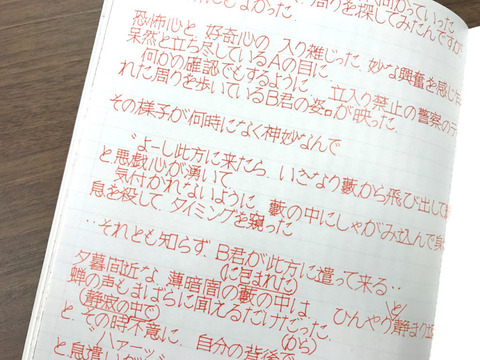 周りを探してみたんですが
恐怖心と、好奇心の 入り雑じった、妙な興奮を感じ
呆然と立ち尽しているAの目に、
何かの確認でもするように… 立入り禁止の警察のテ
れた周りを歩いているB君の姿が映った.
その様子が何時になく神妙なんで
"よーし此方に来たら、いきなり藪から飛び出して
と悪戯心が湧いて、
気付かれないように、藪の中にしゃがみ込んで身
息を殺して、タイミングを窺った
‥それとも知らず、B君が此方に遣って来る‥
夕暮間近な、薄暗闇の藪の中は、ひんやり静まり
(に包まれた)
と
蝉の声もまばらに聞えるだけだった.
(静寂の中で)
と、その時不意に、自分の背後で
(から)
"ハァーッ
と息遣いが